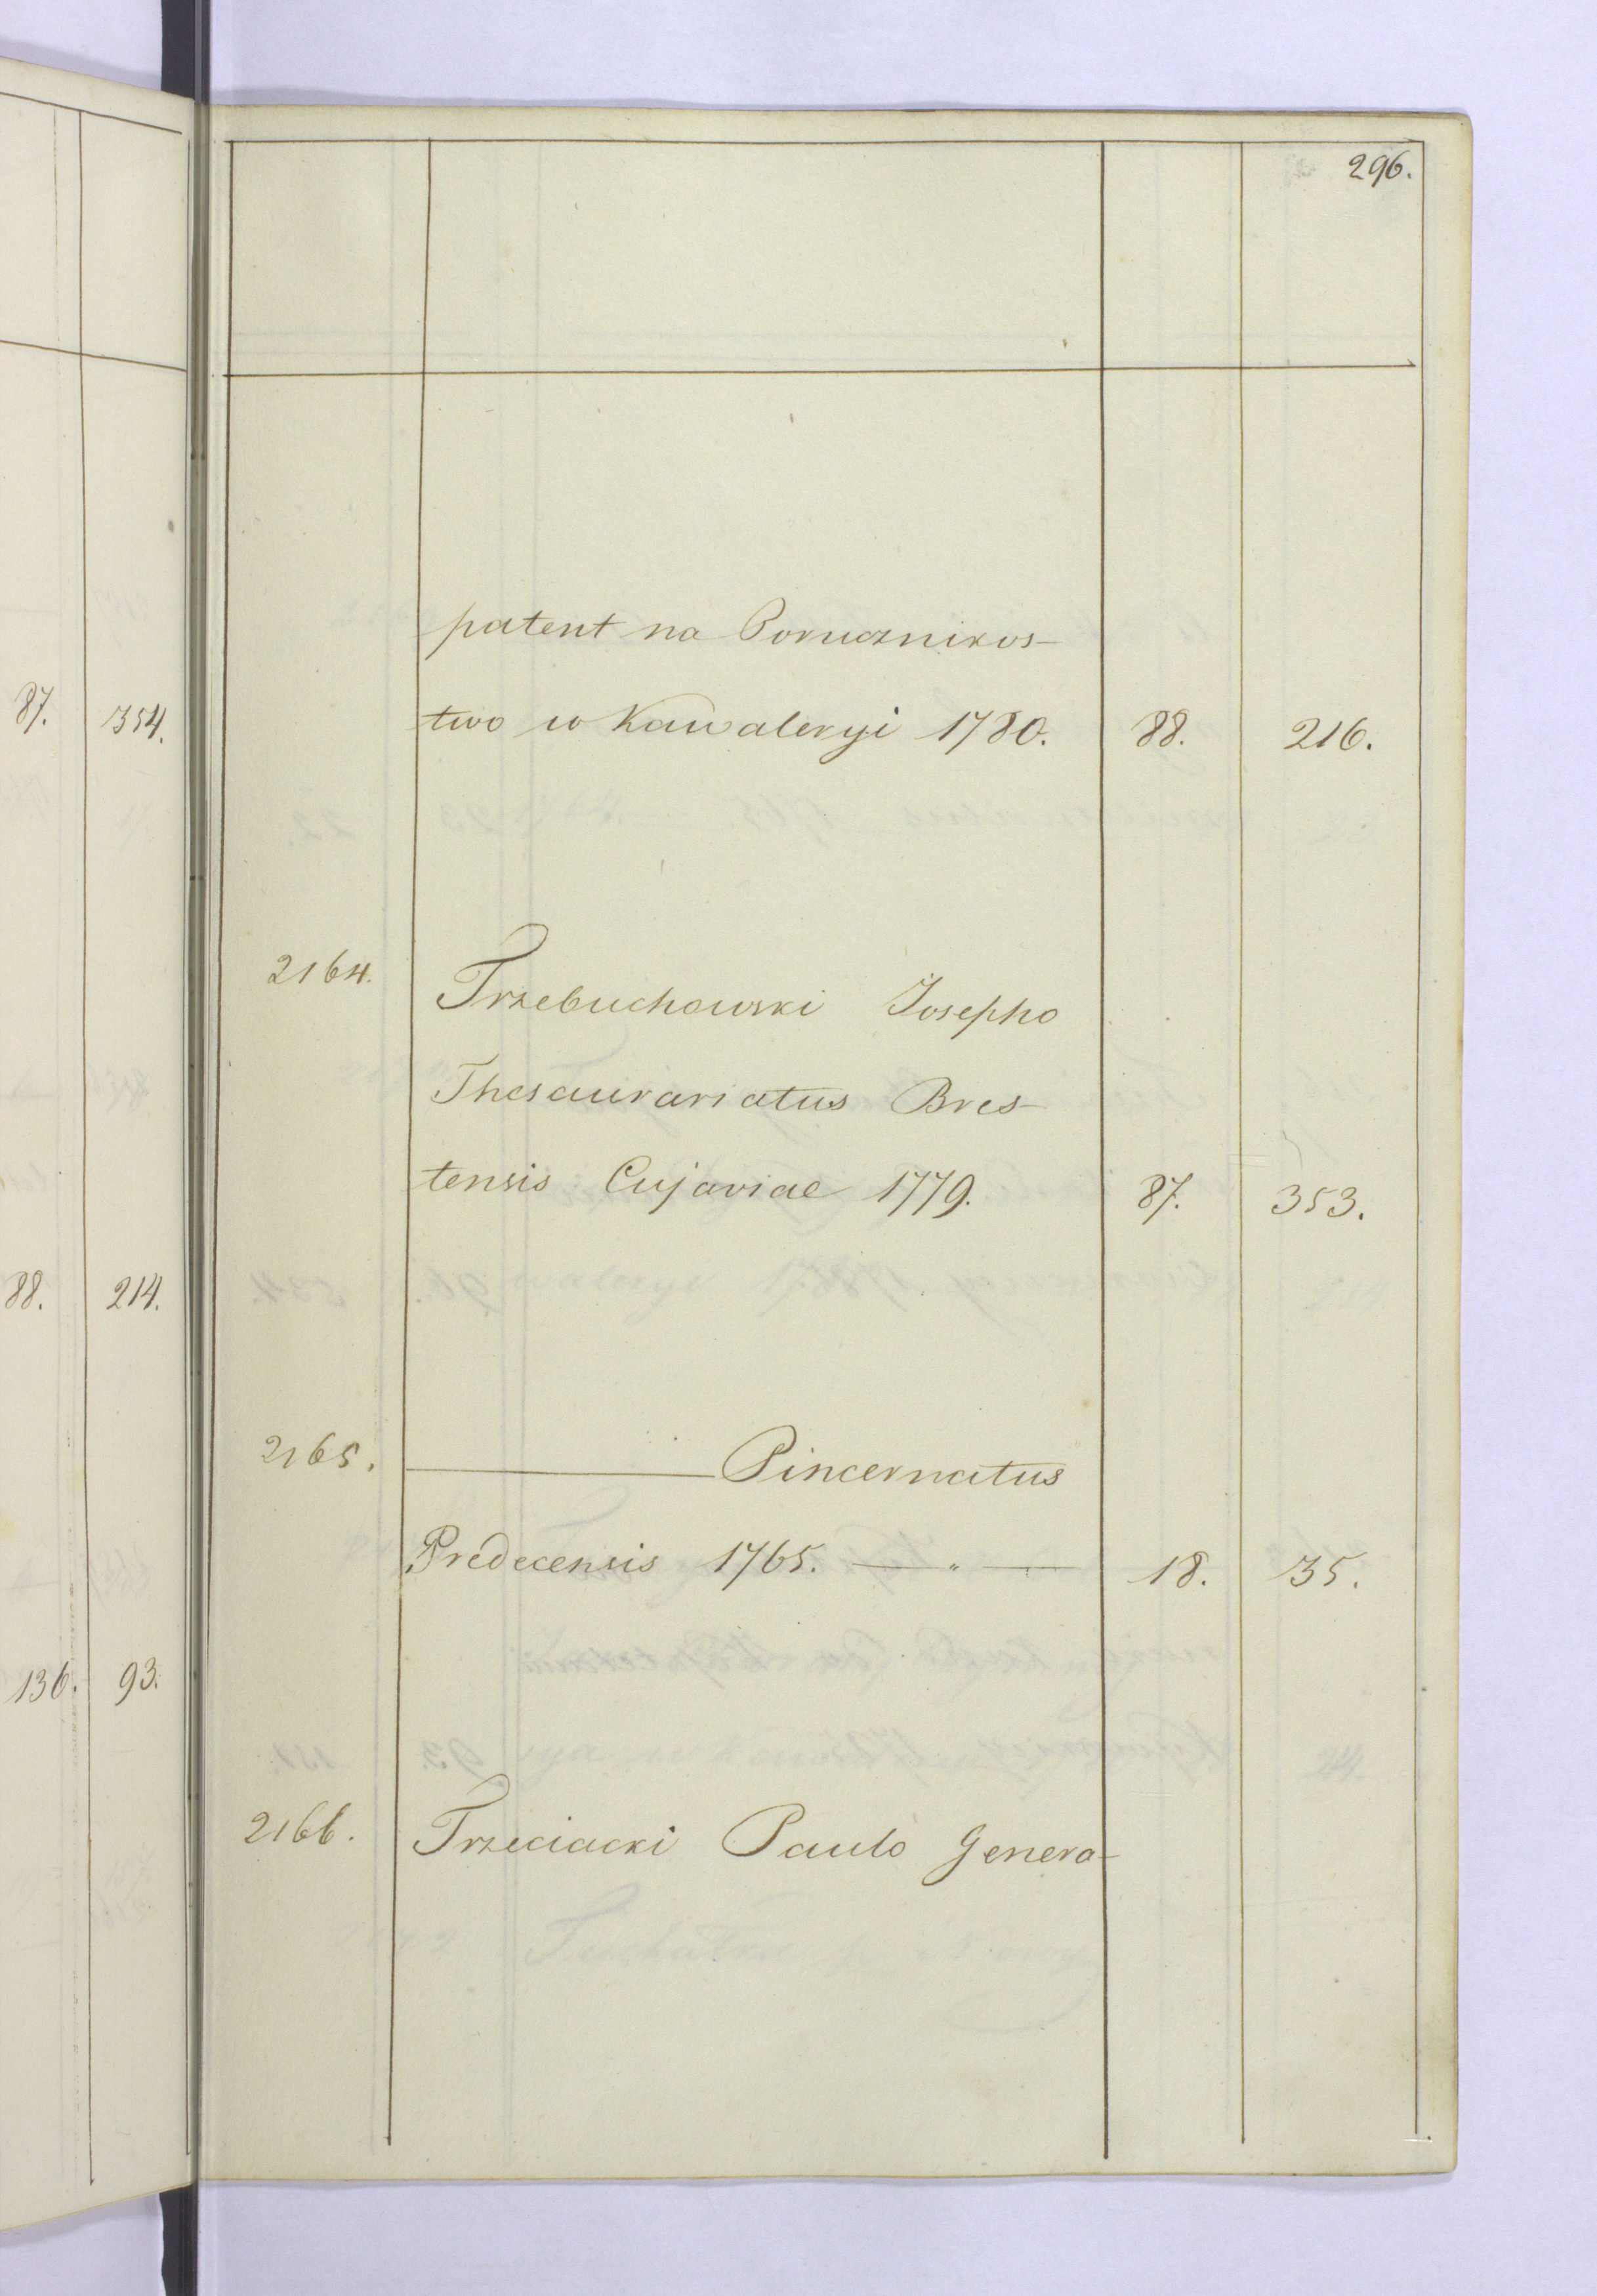 296.
patent na Porucznikos-
two w Kawaleryi 1780. 88. 216.
2164. Trzebuchowski Josepho
Thesaurariatus Bres-
tensis Cujaviae 1779. 87. 353.
2165. ——— Pincernatus
Predecensis 1765. — „ — 18. 35.
2166. Trzeciacki Paulo Genera-
87. 354.
88. 214.
136. 93.